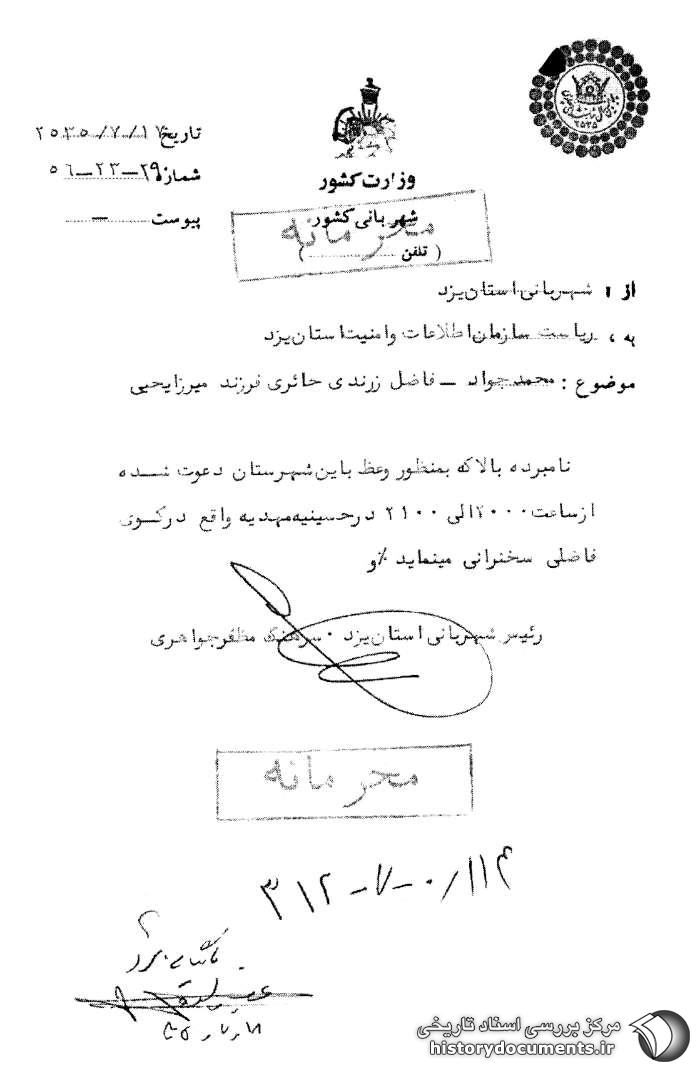 تاریخ ۲۵۳۵/۷/۱۷
شماره ۲۹-۲۳-۵۶
پیوست —
وزارت کشور
شهربانی کشور
( تلفن )
محرمانه
از : شهربانی استان یزد
به ، ریاست سازمان اطلاعات و امنیت استان یزد
موضوع : محمد جواد – فاضل زرندی حائری فرزند میرزایحیی
نامبرده بالا که بمنظور وعظ باین شهرستان دعوت شده
از ساعت ۲۰۰۰ الی ۲۱۰۰ در حسینیه مهدیه واقع در کوی
فاضلی سخنرانی مینماید ٪و
رئیس شهربانی استان یزد ۰ سرهنگ مظفر جواهری
محرمانه
مرکز بررسی اسناد تاریخی
historydocuments.ir